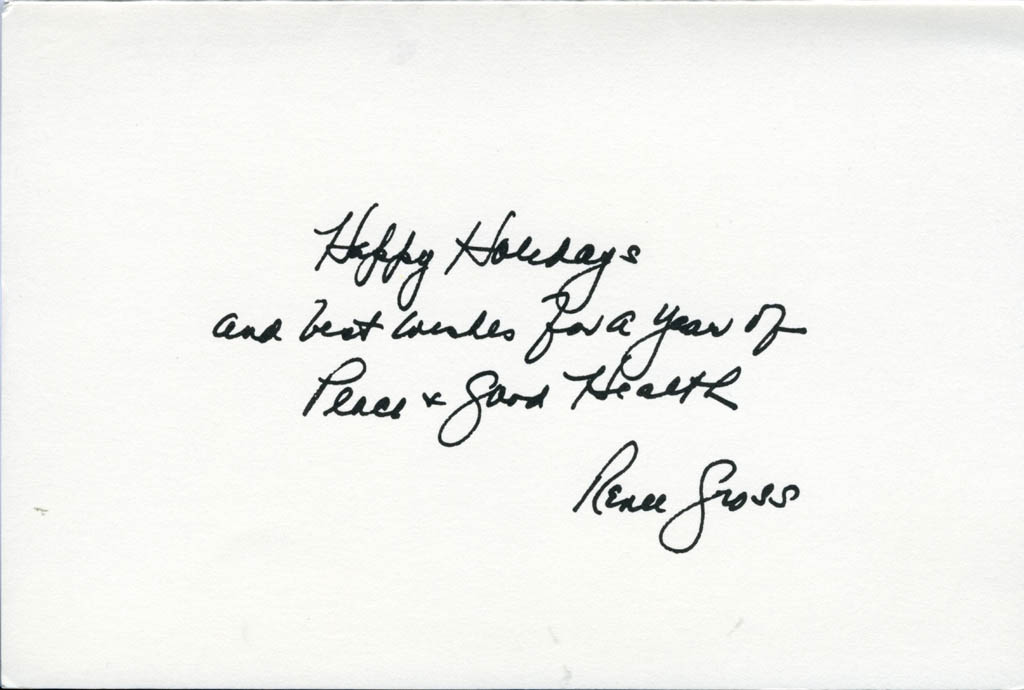 Happy Holidays
and best wishes for a year of
Peace + Good Health
Renee Gross